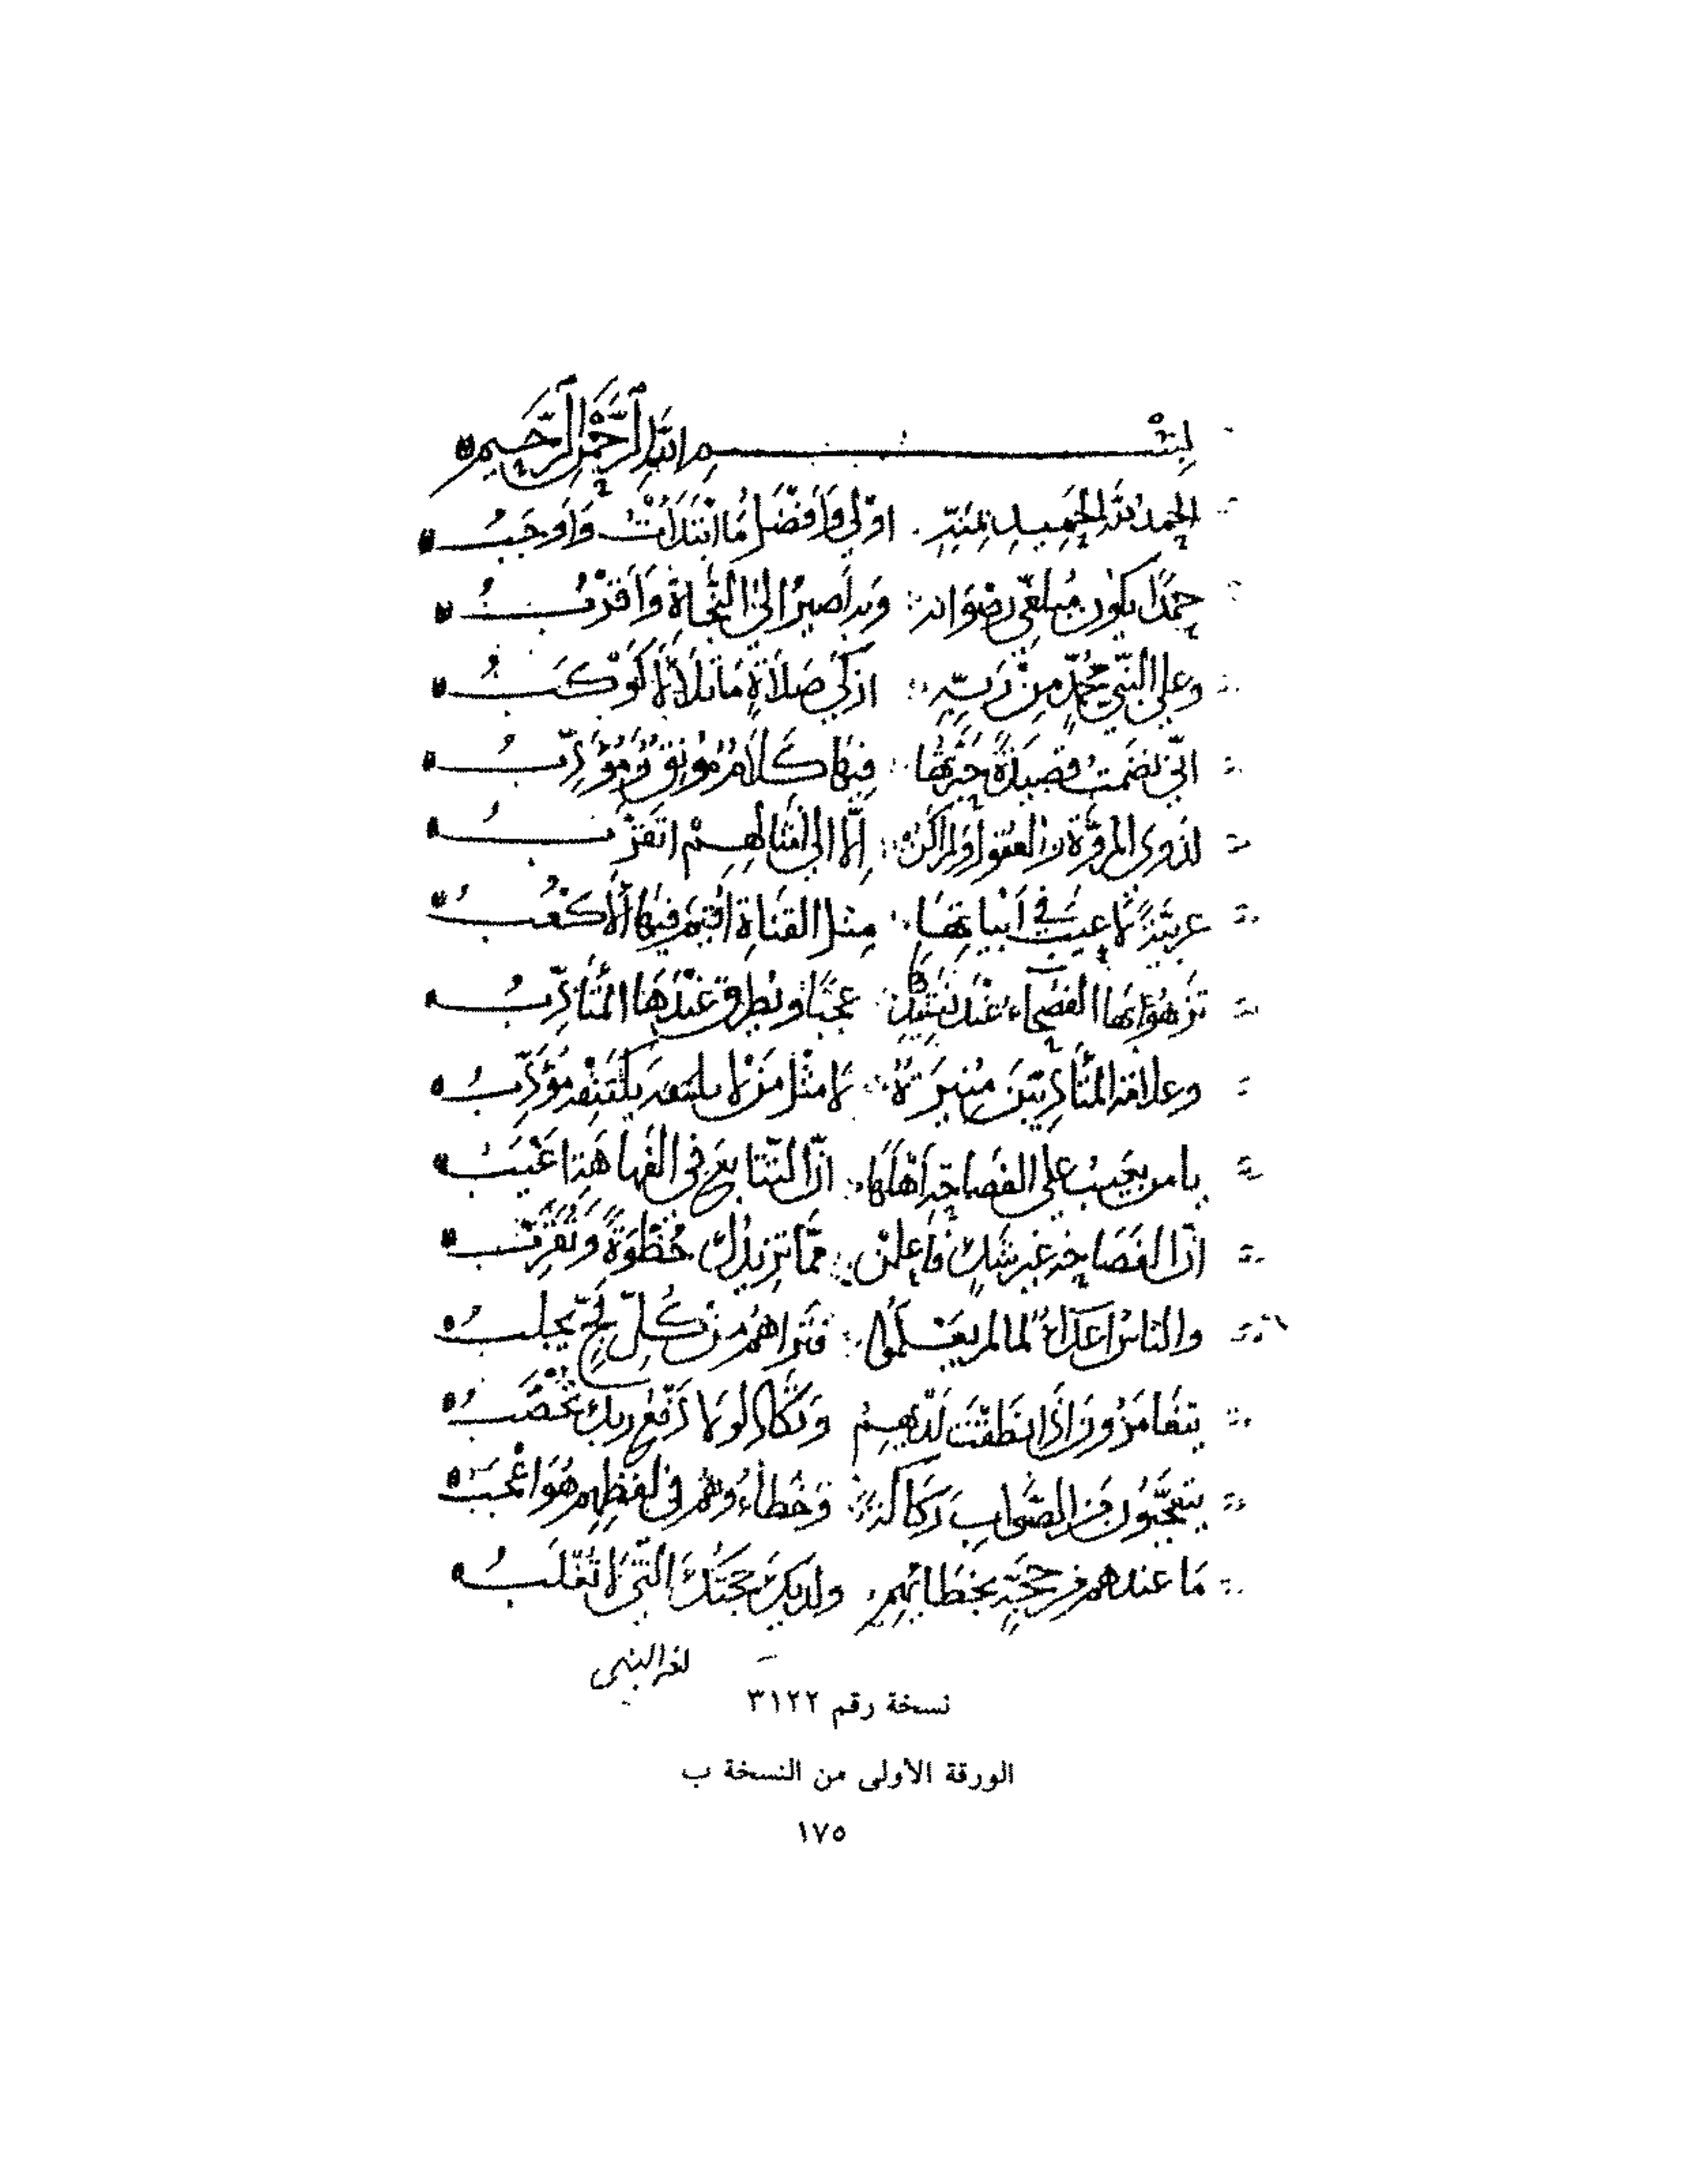 بسم الله الرحمن الرحيم
الحمد لله الحميد بمنه اولى وأفضل ما ابتدأت وأوجب
حمدا يكون مبلغي رضوانه وبه أصير إلى النجاة وأقرب
وعلى النبي محمد من ربه ازكى صلاة ما تلألأ كوكب
انى نضمت قصيدة حبرتها فيها كلام مونق ومؤدب
لذوى المروة والعقول ولم اكن إلا إلى امثالهم اتقرب
عربية لا عيب في أبياتها مثل القناة اقيم فيها الأكعب
تزهو بها الفصحاء عند نشيدها عجبا ويطرق عندها المتأدب
وعلامة المتأدبين منيرة لا مثل من لا يلتقه مؤدب
يا من يعيب على الفصاحة أهلها ان التتابع في الفهاهة اعيب
ان الفصاحة غير شك فاعلمن مما تزيدك حظوة وتقرب
والناس اعداء لما لم يعلموا فتراهم من كل فج يجلب
يتغامزون اذا نطقت لديهم وتكاد لولا دفع ربك تحصب
يتعجبون من الصواب ركاكة وخطاءوهم في لفظهم هو اعجب
ما عندهم من حجة بخطائهم ولديك حجتك التي لا تغلب
لغة النبى
نسخة رقم ٣١٢٢
الورقة الأولى من النسخة ب
١٧٥